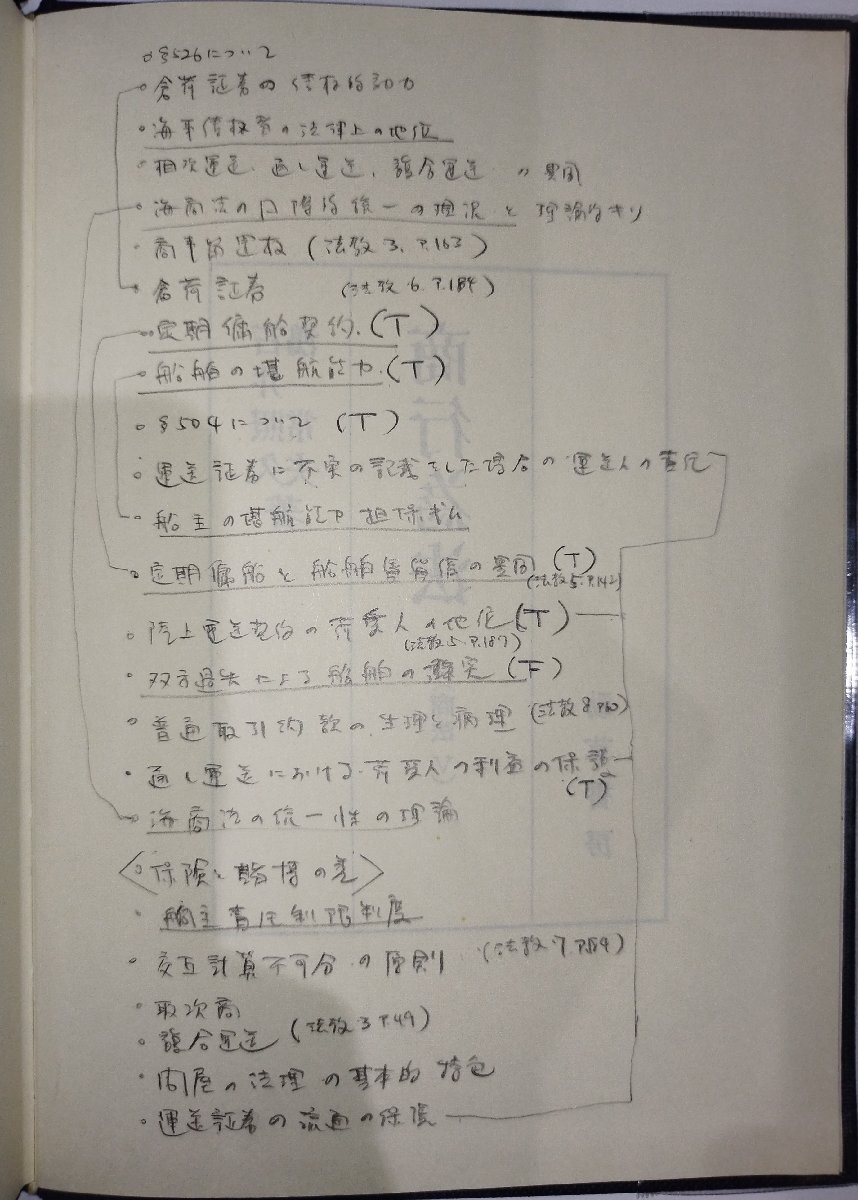 ○ §526について
○ 倉荷証券の債権的効力
○ 海事債権者の法律上の地位
・ 相次運送、通し運送、複合運送の異同
・ 海商法の国際的統一の現況と理論的
・ 商事留置権 (法教3. P.163)
・ 倉荷証券 (法教6. P.184)
・ 定期傭船契約.(T)
・ 船舶の堪航能力.(T)
○ §504について (T)
○ 運送証券に不実の記載をした場合の運送人の責任
・ 船主の堪航能力担保ギム
○ 定期傭船と船舶賃貸借の異同 (T)
(法教5. P.142)
○ 陸上運送契約の荷受人の地位 (T)
(法教5. P.187)
・ 双方過失による船舶の衝突 (T)
○ 普通取引約款の生理と病理 (法教8 P60)
・ 通し運送における荷受人の利益の保護
(T)
○ 海商法の統一性の理論
〈○ 保険と賭博の差〉
・ 船主責任制限制度
○ 交互計算不可分の原則 (法教7. P.154)
・ 取次商
○ 複合運送 (法教3 P.49)
・ 問屋の法理の基本的特色
・ 運送証券の流通の保護
商行為法